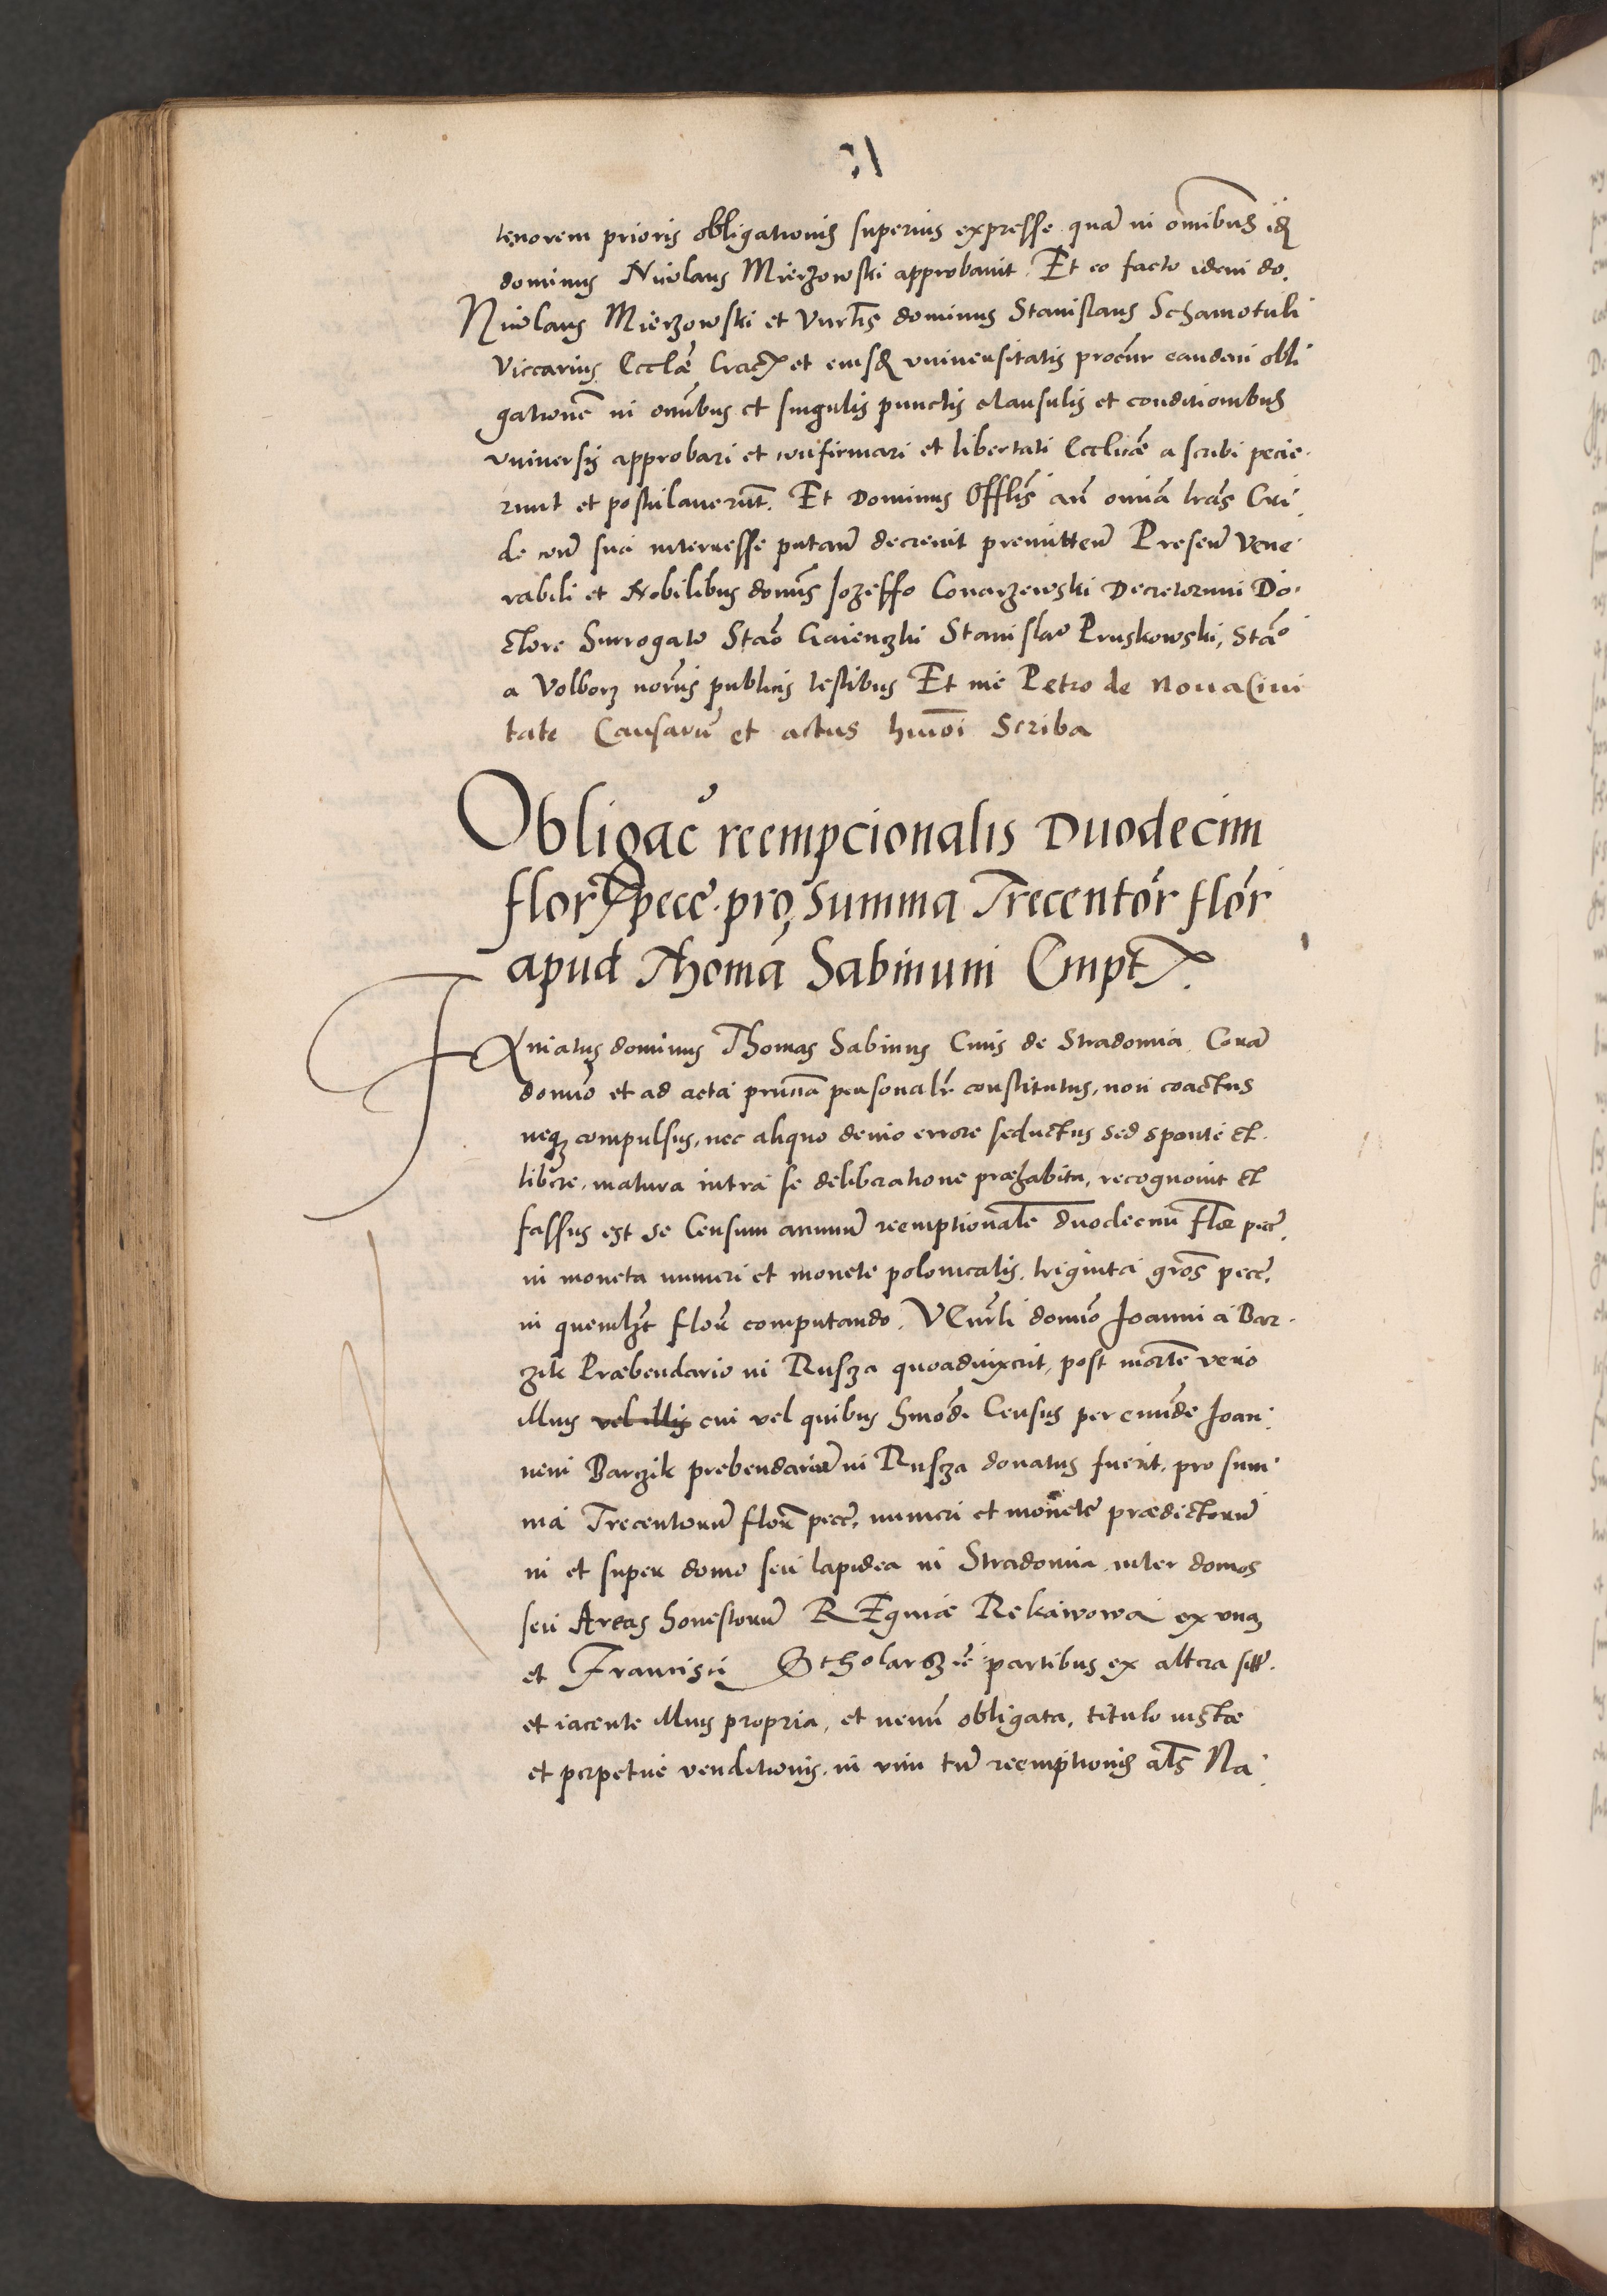 tenorem prioris obligationis superius expresse quã in omibus idẽ
dominus Nicolaus Mierzowski approbavit. Et eo facto idem do.
Nicolaus Mierzowski et Vnrlis dominus Stanislaus Schamotuli
Viccarius Ecclæ Crac et eiusdẽ vniversitatis procur eandem obli
gationẽ in omnibus et singulis punctis clausulis et conditionibus
vniversis approbari et confirmari et libertati Ecclicæ ascribi pecie.
runt et postulaverũt. Et Dominus Offlis añ omiã
de suã interesse putañ decrevit premitteñ Preseñ Vene
rabili et Nobilibus domis Jozeffo Conarzewski Decretorum Do.
ctore Surrogato Stão Gaienczki Stanislao Pruskowski, Stão
a Volborz noriis publicis testibus Et me Petro de Nova Civi
tate Causarũ et actus humõi Scriba
Obligac reempcionalis Duodecim
flor pece. pro summa Trecentor flor
apud Thomã Sabinum Empt.
FAmatus dominus Thomas Sabinus Civis de Stradomia Corã
domio et ad acta prñia personalr constitutus, non coactus
neqz compulsus, nec aliquo devio errore seductus sed sponte et.
libere, matura intra se deliberatione præhabita, recognovit et
fassus est se Censum annuũ reemptionalẽ duodecim flor pec.
in moneta numeri et monete polonicalis. triginta gros pece.
in quemlzt flor computando. VEnrli domio Joanni a Bar.
zik Præbendario in Rusza quoad vixerit, post mortẽ vero
illius vel illis cui vel quibus hmõdi Census per eundẽ Joan.
nem Barzik prebendariũ in Rusza donatus fuerit. pro sum
ma Trecentorũ flor pece, numeri et monete prædictorũ
in et super domo seu lapidea in Stradomia inter domos
seu Areas honestorũ REginæ Rekawowa ex una
et Francisci Scholarszie partibus ex altera sitt.
et iacente illius propria, et nemini obligata, titulo iustæ
et perpetue venditionis, in vim tñ reemptionis als Na